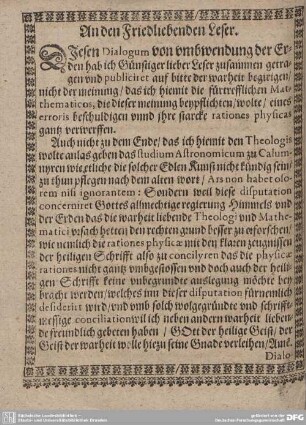 An den Friedliebenden Leser.
DJesen Dialogum von vmbwendung der Er-
den hab ich Günstiger lieber Leser zusammen getra-
gen vnd publiciret auf bitte der warheit begirigen/
nicht der meinung / das ich hiemit die fürtrefflichen Mat-
thematicos, die dieser meinung beypflichten/wolte / eines
erroris beschuldigen vnnd jhr starcke rationes physicas
gantz verwerffen.
Auch nicht zu dem Ende/ das ich hiemit den Theologis
wolte anlas geben das studium Astronomicum zu Calum-
nyren wie etliche die solcher Edlen Kunst nicht kündig sein/
zu thun pflegen nach dem alten wort / Ars non habet oso-
rem nisi ignorantem: Sondern weil diese disputation
concerniret Gottes allmechtige regierung Himmels vnd
der Erden das die warheit liebende Theologi vnd Mathe-
matici vrsach hetten den rechten grund besser zu erforschen/
wie nemlich die rationes physicæ mit den klaren zeugnissen
der heiligen Schrifft also zu concilyren das die physicæ
rationes nicht gantz vmbgestossen vnd doch auch der heili-
gen Schrifft keine vnbegründte auslegung möcht bey
bracht werden/welches inn dieser disputation fürnemlich
desiderirt wird/vnd vmb solch wolgegründte vnd schrifft-
messige conciliation wil ich neben andern warheit lieben-
de freundlich gebeten haben / GOtt der heilige Geist / der
Geist der warheit wolle hiezu seine Gnade verleihen/ Amē.
Dialo-
Sächsische Landesbibliothek –
Staats- und Universitätsbibliothek Dresden
gefördert von der
Deutschen Forschungsgemeinschaft
DFG